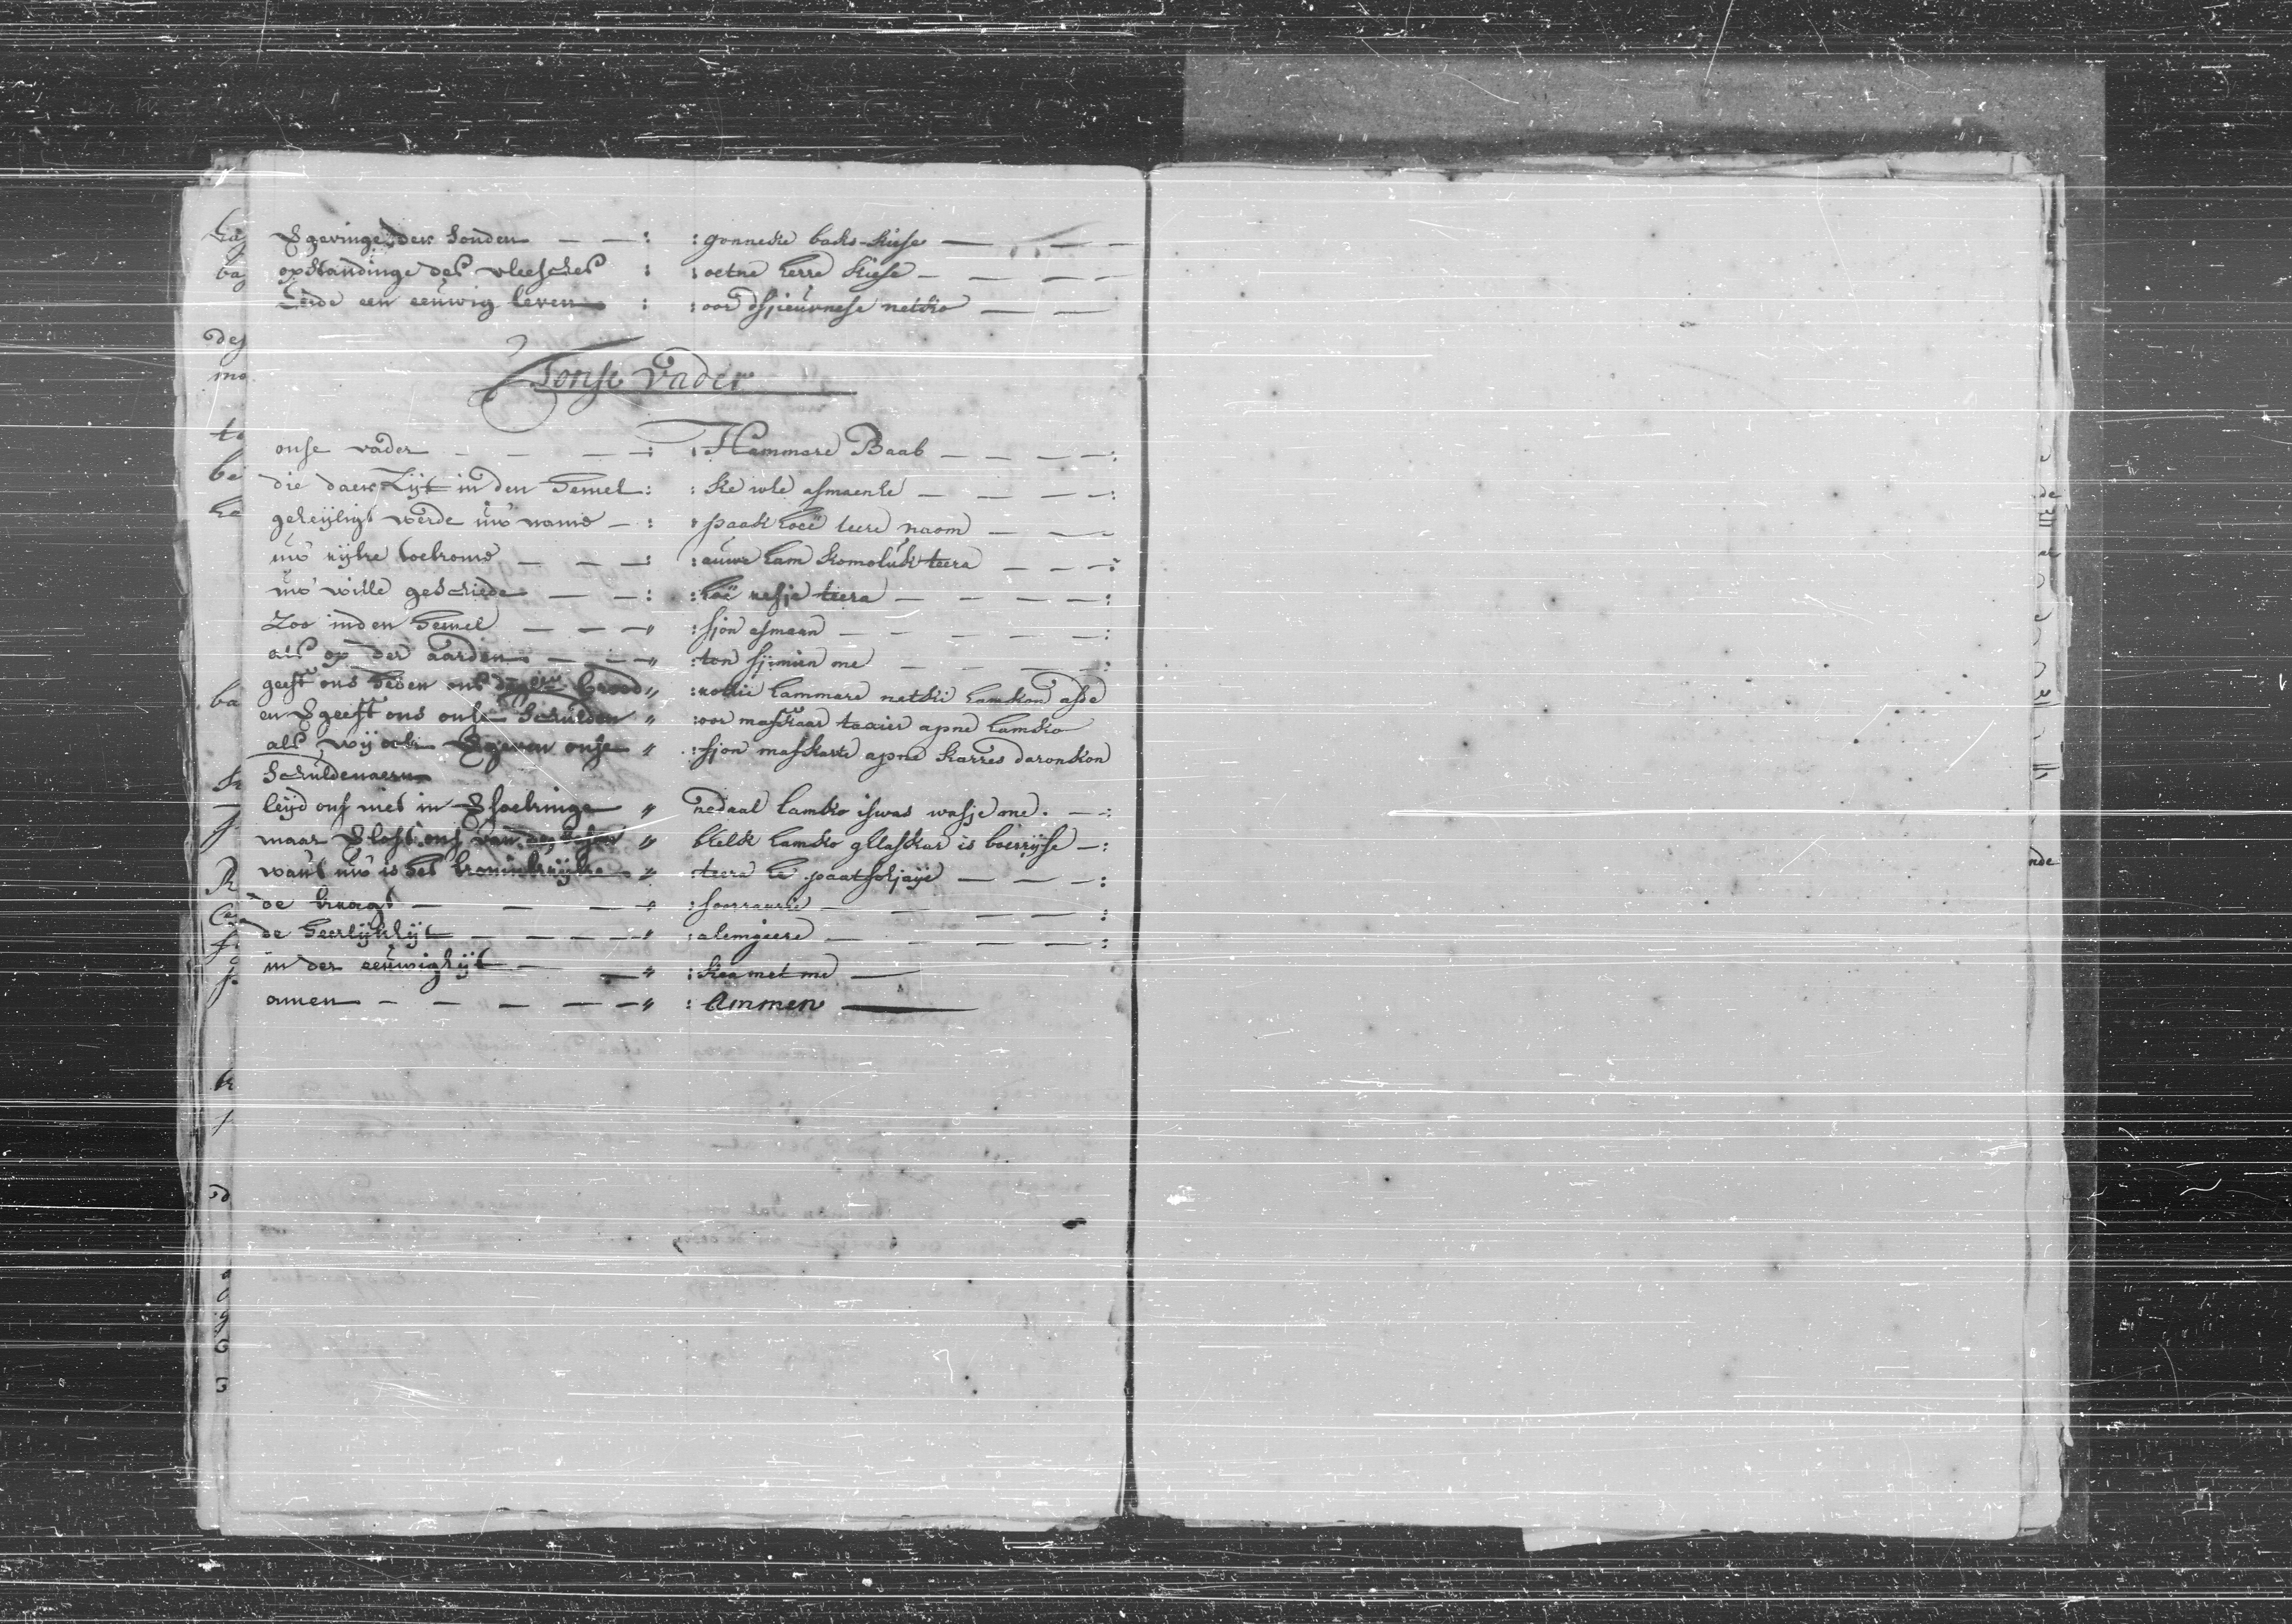 vgevinge der sonden — — : : gonneke baks-kiese — — —
opstandinge des vleesches : : oetne herre kiese — — — —
Ende een eeuwig leven : : oor dsjieuwnese netko — —
T'onse Vader
onse vader — — — : : Hammare Baab — — — — :
die daer Zijt in den hemel : : ke whe asmaenhe — — — — :
geheijligt werde uw name — : : paak hoeë teere naom — — —
uw rijke toekome — — — : : auwe ham komoluk teera — — — :
uw wille geschiede — — : : hoë uesje teera — — — — :
Zoo in den hemel — — — " : sjon asmaan — — — — — :
als op der aarden — — — " : ton sjimien me — — — — :
geeft ons heden ons brood " : rotkie hammare netki hamkon asde
en vgeeft ons onse schulden " : oor maskaar taxier apne hamko
als wij ook vgeven onse " : sjon maskarte apne karres daronkon
schuldenaern
leijd ons niet in vsoekinge " nedaal hamko iswas wasje me . — :
maar vlost ons van den " bkelk hamko gklaskar is boerijse — :
want uw is het koninkrijke " : teera he paatsohjaije — — — :
de kragt — — — — " : — — — — :
de heerlijkhijt — — — — " : alemgeere — — — — :
in der eeuwighijt — — " : keamet me —
amen — — — — — " : Ammen —